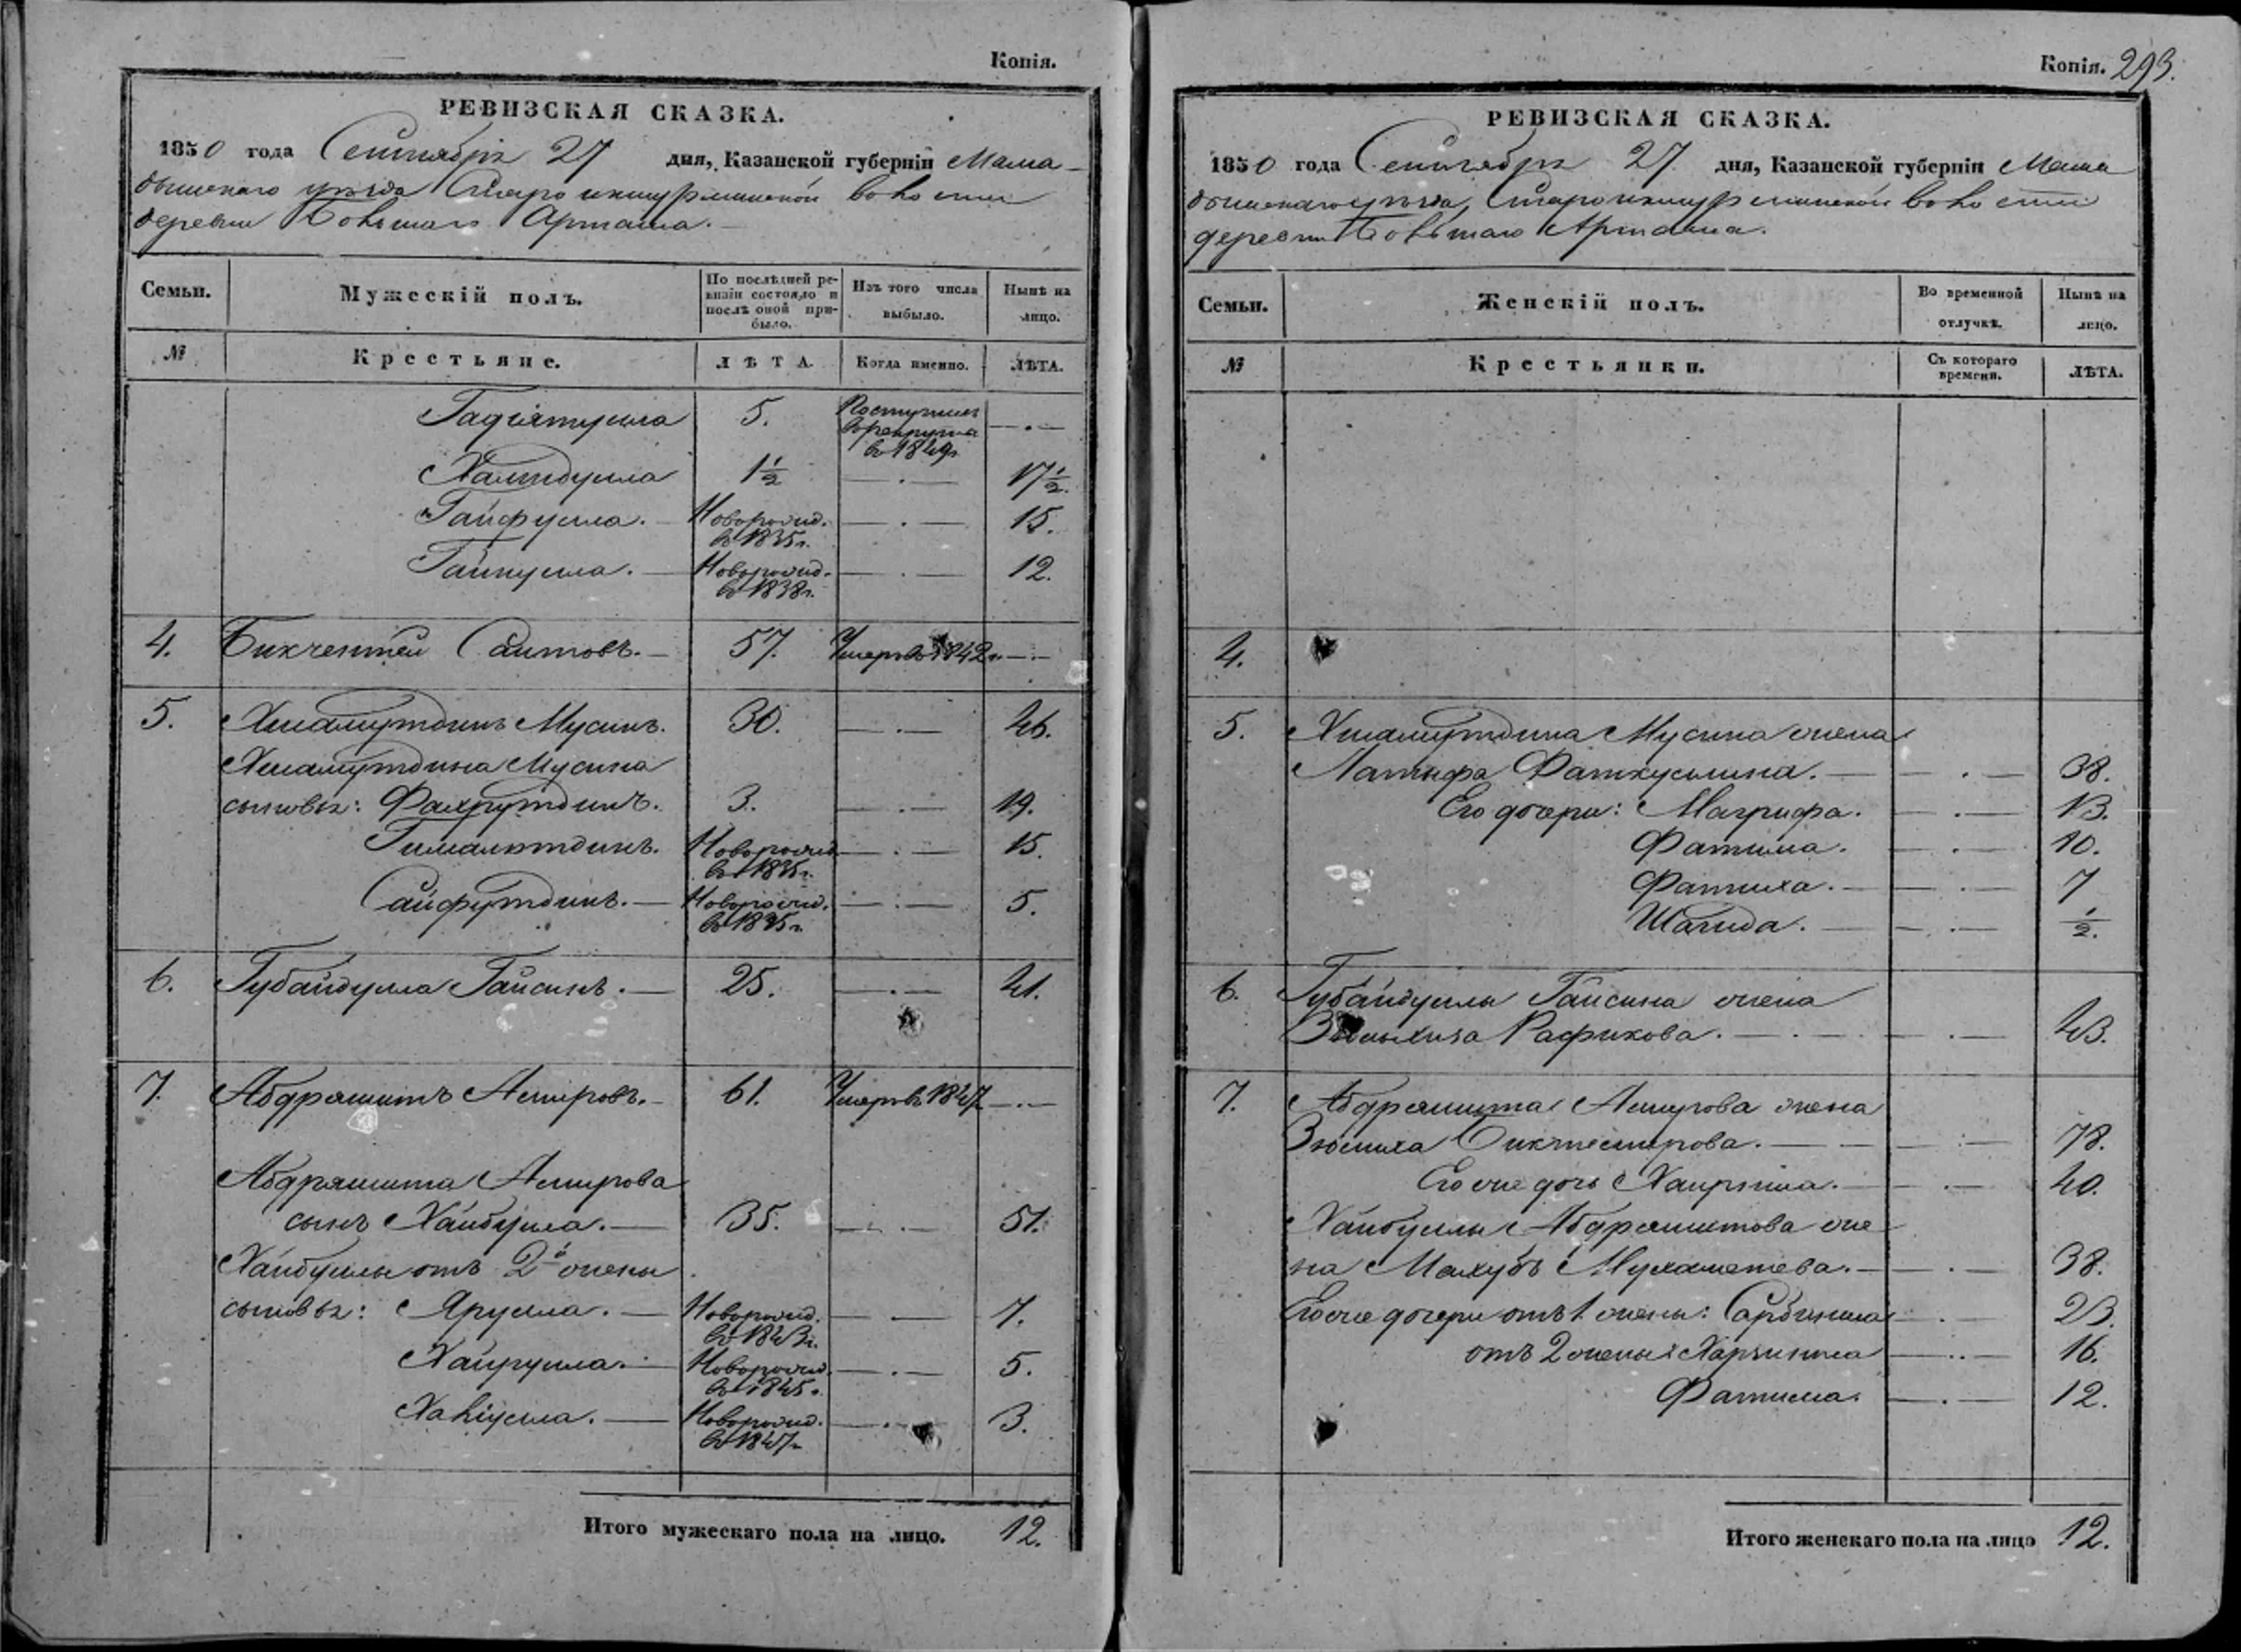 Копія.
РЕВИЗСКАЯ СКАЗКА.
1850 года Сентября 27 дня, Казанской губерніи Мама-
дышскаго уѣзда Староикшурминской волости
деревни Большаго Арташа.
Семьи. Мужескій полъ. По послѣдней ре-визіи состояло и послѣ оной при-было. Изъ того числа выбыло. Нынѣ на лицо.
№ Крестьяне. ЛѢТА. Когда именно. ЛѢТА.
Гадіятулла 5. Поступилъ в рекруты в 1849г.
Халитдулла 1½ 17½.
Гайфулла. Новорожд. в 1835г. 15.
Гайнулла. Новорожд. в 1838г. 12.
4. Бикчентей Саитовъ. 57. Умеръ в 1842г.
5. Хисамутдинъ Мусинъ. 30. 46.
Хисамутдина Мусина
сыновья: Фахрутдинъ. 3. 19.
Гималетдинъ. Новорожд. в 1835г. 15.
Сайфутдинъ. Новорожд. 5.
6. Губайдулла Гайсинъ. 25. 41.
7. Абдряшитъ Амировъ. 61. Умеръ в 1847
Абдряшита Амирова
сынъ Хайбулла. 35. 51.
Хайбуллы отъ 2й жены
сыновья: Ярулла. Новорожд. в 1843г. 7.
Хайрулла. Новорожд. в 1845г. 5.
Новорожд. в 1847г. 3.
Итого мужескаго пола на лицо. 12.
Копія. 293.
РЕВИЗСКАЯ СКАЗКА.
1850 года Сентября 27 дня, Казанской губерніи Мама
дышскаго уѣзда, Староикшурминской волости
деревни Большаго Арташа.
Семьи. Женскій полъ. Во временной отлучкѣ. Нынѣ на лицо.
№ Крестьянки. Съ котораго времени. ЛѢТА.
4.
5. Хисамутдина Мусина жена
Латыфа Фаткуллина. 38.
Его дочери: Магрифа. 13.
Фатима. 10.
Фатиха. 7
Шагида. ½.
6. Губайдуллы Гайсина жена
Рафикова. 43.
7. Абдряшита Амирова жена
Зюмиха Биктемирова. 78.
Его же дочь 40.
Хайбуллы Абдряшитова же
на Махубъ Мухаметева. 38.
Его же дочери отъ 1 жены: 23.
отъ 2 жены: 16.
Фатима. 12.
Итого женскаго пола на лицо 12.